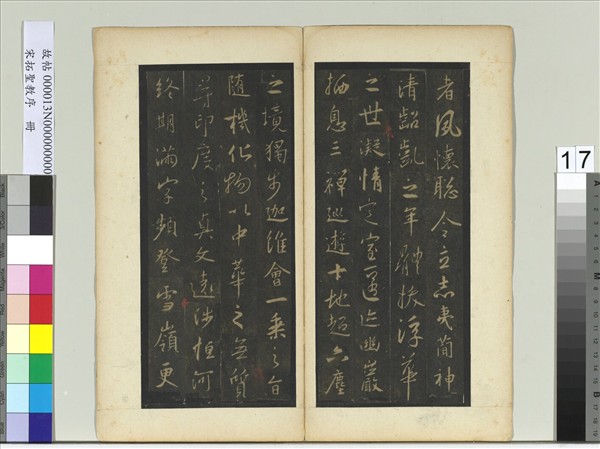 者夙懷聰令立志夷簡神
清齠齔之年體拔浮華
之世凝情定室匿迹幽巖
栖息三禪巡遊十地超六塵
之境獨步迦維會一乘之旨
隨機化物以中華之無質
尋印度之真文遠涉恒河
終期滿字頻登雪嶺更
故帖 000013N000000000
宋拓聖教序 冊
17